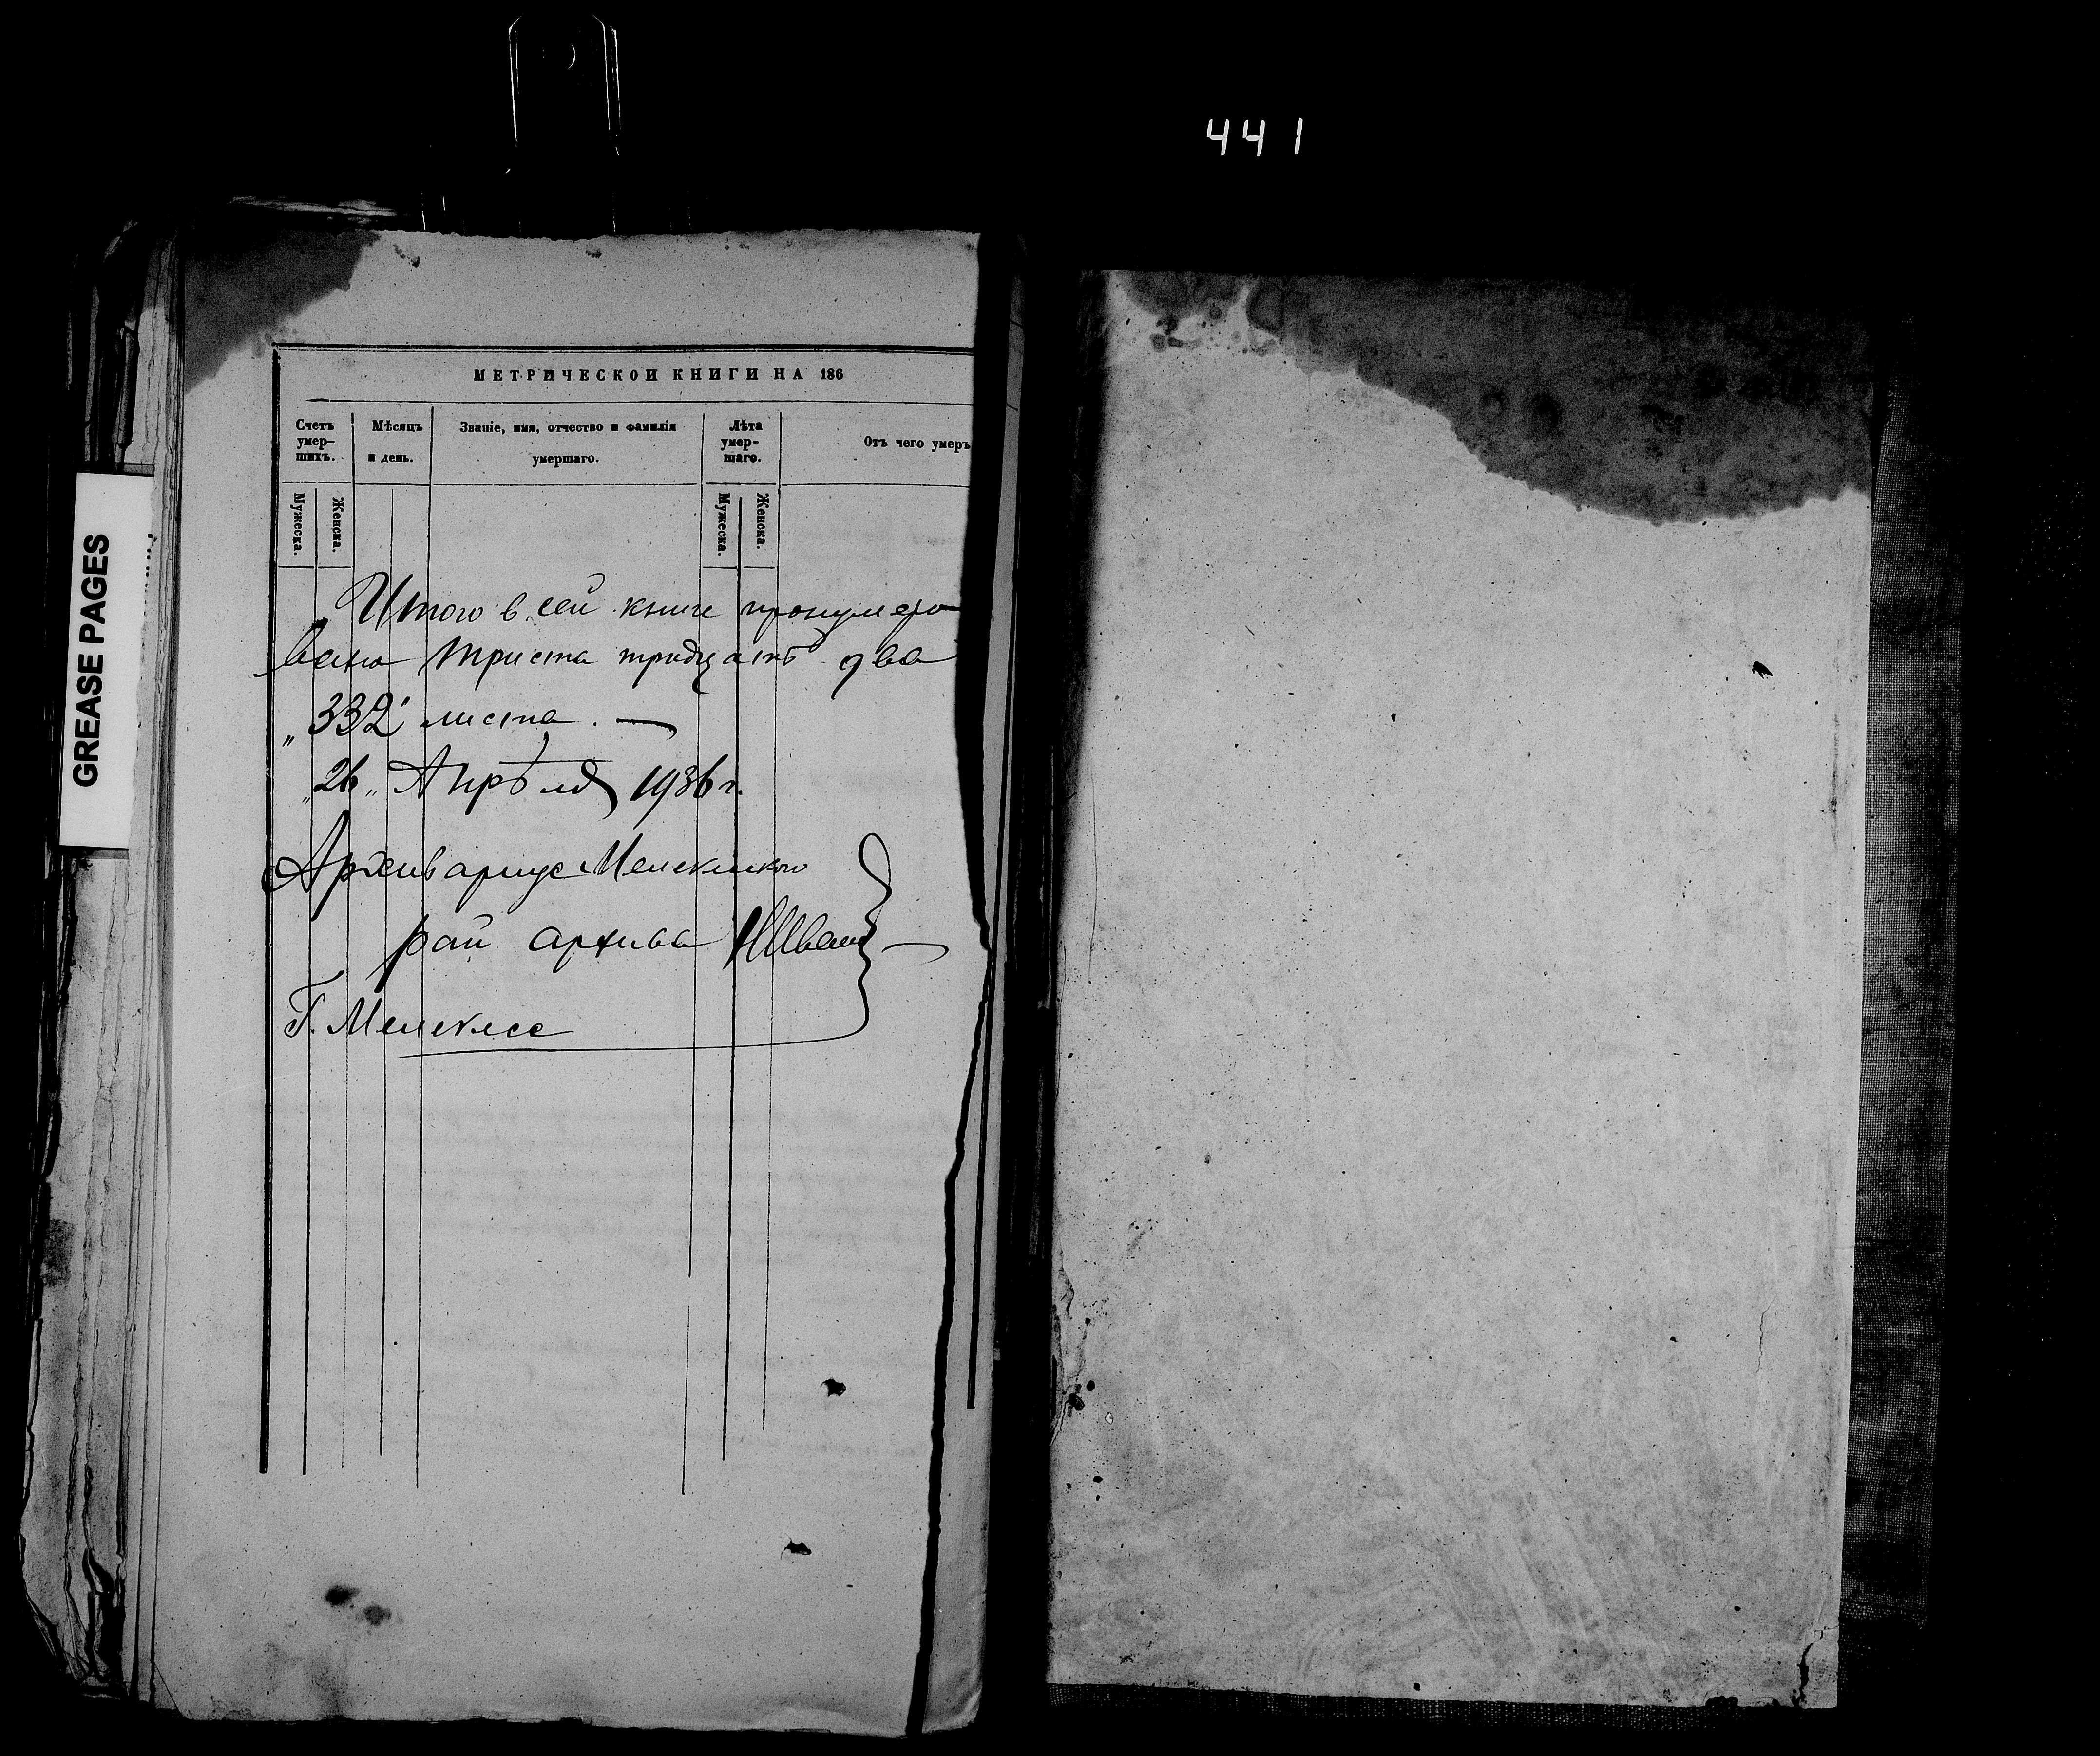 441
GREASE PAGES
МЕТРИЧЕСКОЙ КНИГИ НА 186
Счетъ умер-шихъ.
Мѣсяцъ и день.
Званіе, имя, отчество и фамилія умершаго.
Лѣта умер-шаго.
Отъ чего умеръ
Мужеска.
Женска.
Мужеска.
Женска.
Итого в сей книге пронумеро
вано триста тридцать два
„332" листа. —
„26„ Апрѣля 1936 г.
Архивариус Мелекесского
рай архива
Г. Мелекесс